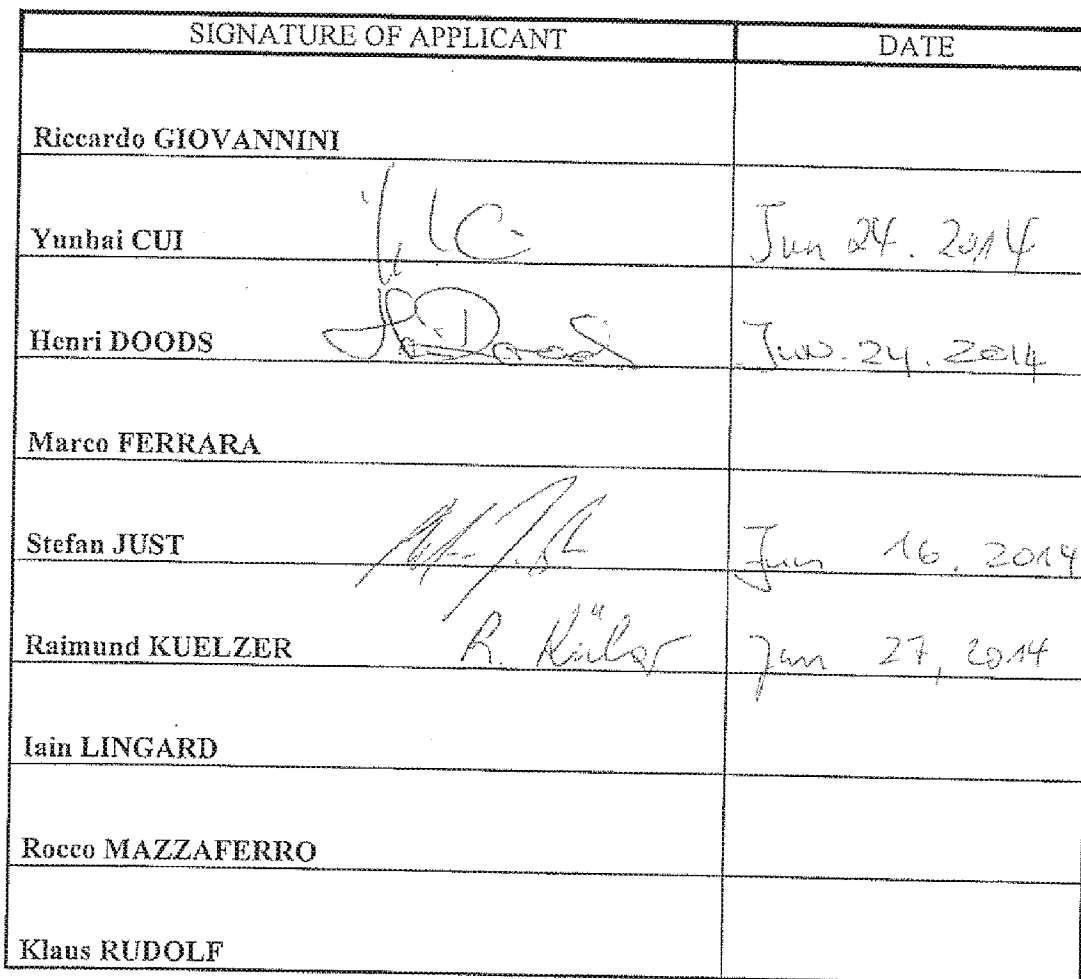 SIGNATURE OF APPLICANT DATE
Riccardo GIOVANNINI
Yunhai CUI Jun 24. 2014
Henri DOODS H. Doods Jun. 24. 2014
Marco FERRARA
Stefan JUST Jun 16. 2014
Raimund KUELZER R. Külzer Jun 27, 2014
Iain LINGARD
Rocco MAZZAFERRO
Klaus RUDOLF